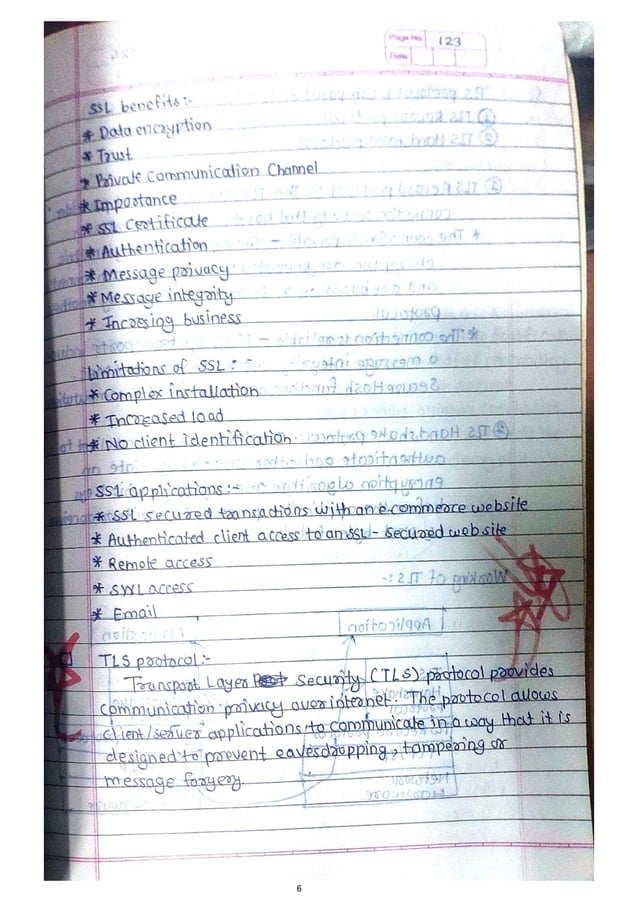 Page No. 123
Date
SSL benefits:-
* Data encryption
* Trust
* Private Communication Channel
* Importance
* SSL Certificate
* Authentication
* Message privacy
* Message integrity
* Incresing business
Limitations of SSL:-
* Complex installation
* Increased load
* No client identification
SSL applications:-
* SSL secured transactions with an e-commerce website
* Authenticated client access to an SSL-secured website
* Remote access
* access
* Email
TLS protocol:-
Transport Layer Security (TLS) protocol provides
communication privacy over internet. The protocol allows
client/server applications to communicate in a way that it is
designed to prevent eavesdropping, tampering or
message forgery.
6